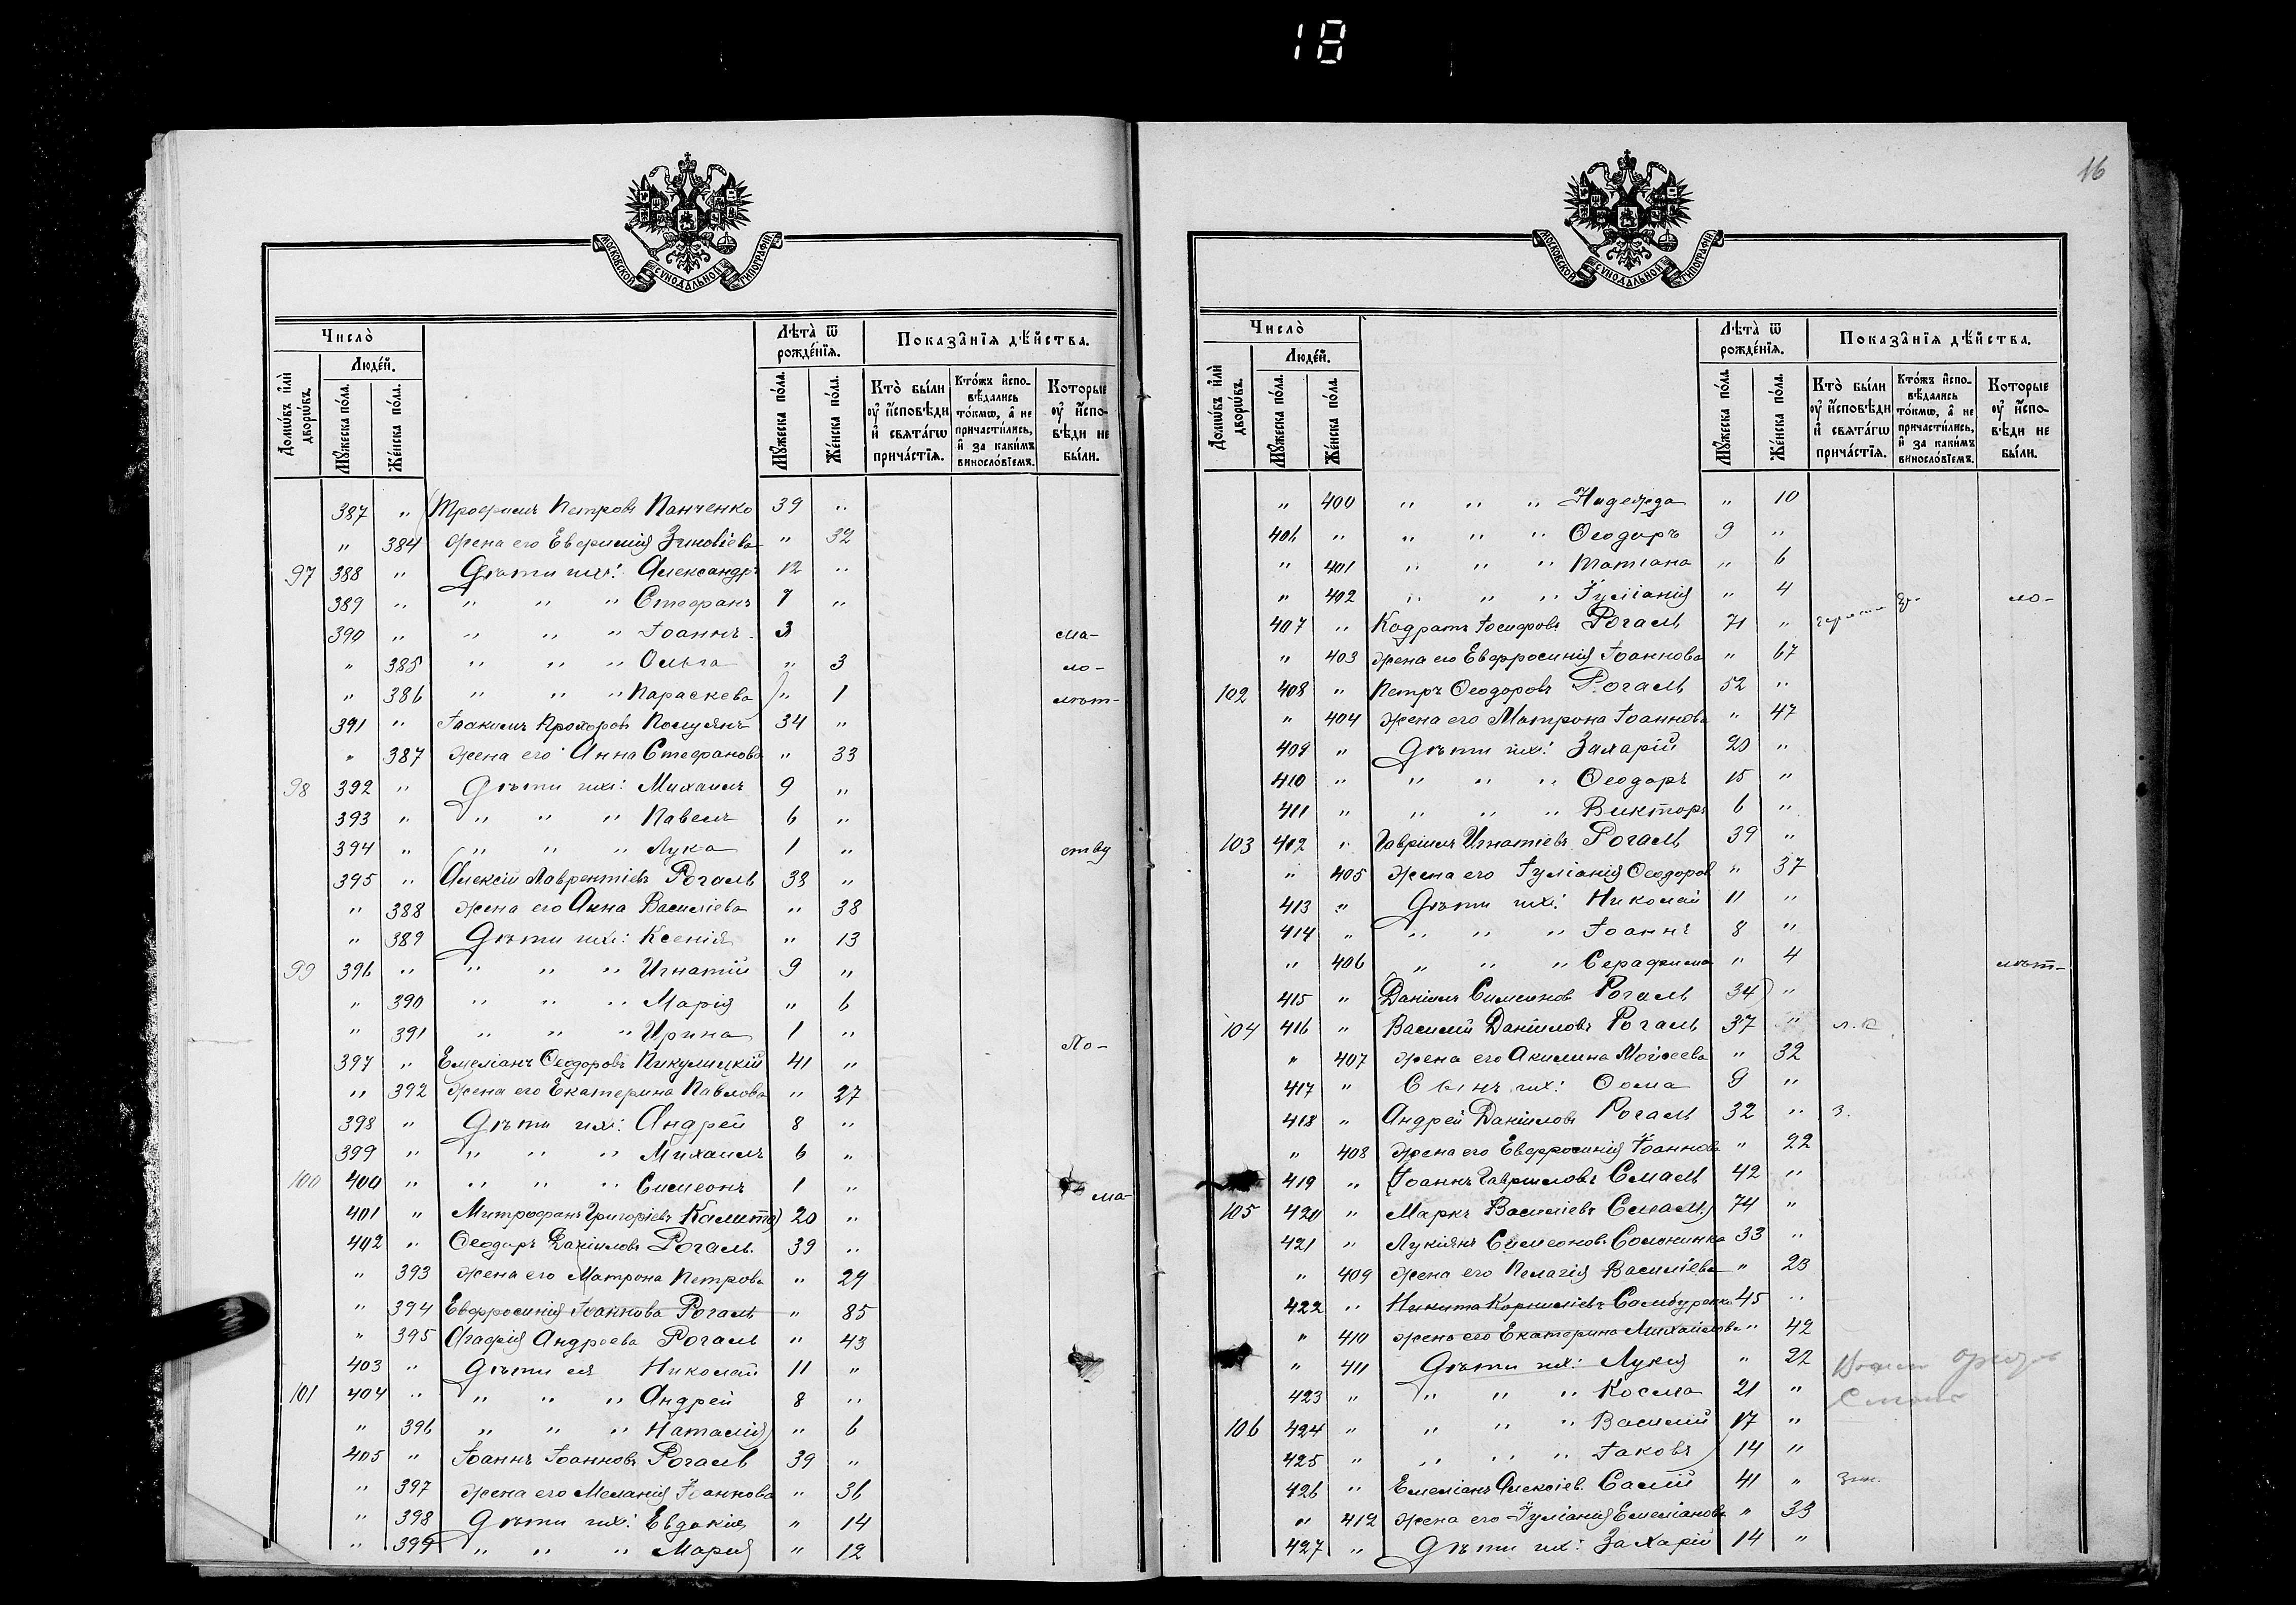 18
МОСКОВСКОЙ СѴНОДАЛЬНОЙ ТИПОГРАФІИ.
Число̀
Люде́й.
Домѡ́въ и҆лѝ дворѡ́въ.
Мꙋ́жеска по́ла.
Же́нска по́ла.
Лѣта̀ ѿ рожде́нїѧ.
Мꙋ́жеска по́ла.
Же́нска по́ла.
Показа̑нїѧ дѣ́йства.
Кто̀ бы́ли ᲂу҆ и҆сповѣди и҆ свѧта́гѡ прича́стїѧ.
Кто́жъ и҆спо-вѣ́дались то́кмѡ, а҆ не причасти́лись, и҆ за каки́мъ винословїемъ.
Которые ᲂу҆ и҆спо-вѣди не бы́ли.
387 „ Трофимъ Петровъ Панченко 39 „
„ 384 жена его Евфимія Зиновіева „ 32
97 388 „ Дѣти ихъ: Александръ 12 „
389 „ „ „ „ Стефанъ 7 „
390 „ „ „ „ Іоаннъ 3 ма-
„ 385 „ „ „ Ольга „ 3 ло-
„ 386 „ „ „ Параскева „ 1 лѣт-
391 „ Іоакимъ Прохоровъ 34 „
„ 387 жена его Анна Стефанова „ 33
98 392 „ Дѣти ихъ: Михаилъ 9 „
393 „ „ „ „ Павелъ 6 „
394 „ „ „ „ Лука 1 „ ству
395 „ Алексій Лаврентіевъ Рогаль 38 „
„ 388 жена его Анна Василіева „ 38
„ 389 Дѣти ихъ: Ксенія „ 13
99 396 „ „ „ „ Игнатій 9 „
„ 390 „ „ „ Марія „ 6
„ 391 „ „ „ Ирина 1 „
397 „ Емеліанъ Ѳеодоровъ Пикулицкій 41 „ ло-
„ 392 жена его Екатерина Павлова „ 27
398 „ Дѣти ихъ: Андрей 8 „
399 „ „ „ „ Михаилъ 6 „
100 400 „ „ „ „ Симеонъ 1 „ ма-
401 „ Митрофанъ Григоріевъ Калита 20 „
402 „ Ѳеодоръ Даніиловъ Рогаль 39 „
„ 393 жена его Матрона Петрова „ 29
„ 394 Евфросинія Іоаннова Рогаль „ 85
„ 395 Агафія Андреева Рогаль „ 43
403 „ Дѣти ея Николай 11 „
101 404 „ „ „ „ Андрей 8 „
„ 396 „ „ „ Наталія „ 6
405 „ Іоаннъ Іоанновъ Рогаль 39 „
„ 397 жена его Меланія Іоаннова „ 36
„ 398 Дѣти ихъ: Евдокія „ 14
„ 399 „ „ „ Марія „ 12
16
МОСКОВСКОЙ СѴНОДАЛЬНОЙ ТИПОГРАФІИ.
Число̀
Люде́й.
Домѡ́въ и҆лѝ дворѡ́въ.
Мꙋ́жеска по́ла.
Же́нска по́ла.
Лѣта̀ ѿ рожде́нїѧ.
Мꙋ́жеска по́ла.
Же́нска по́ла.
Показа̑нїѧ дѣ́йства.
Кто̀ бы́ли ᲂу҆ и҆сповѣди и҆ свѧта́гѡ прича́стїѧ.
Кто́жъ и҆спо-вѣ́дались то́кмѡ, а҆ не причасти́лись, и҆ за каки́мъ винословїемъ.
Которые ᲂу҆ и҆спо-вѣди не бы́ли.
„ 400 „ „ „ Надежда „ 10
406 „ „ „ „ Ѳеодоръ 9 „
„ 401 „ „ „ Татіана „ 6
„ 402 „ „ „ Іуліанія „ 4 ло-
407 „ Кодратъ Іосифовъ Рогаль 71 „
„ 403 жена его Евфросинія Іоаннова „ 67
102 408 „ Петръ Ѳеодоровъ Рогаль 52 „
„ 404 жена его Матрона Іоаннова „ 47
409 „ Дѣти ихъ: Захарій 20 „
410 „ „ „ „ Ѳеодоръ 15 „
411 „ „ „ „ Викторъ 6 „
103 412 „ Гавріилъ Игнатіевъ Рогаль 39 „
„ 405 жена его Іуліанія Ѳеодоров „ 37
413 „ Дѣти ихъ: Николай 11 „
414 „ „ „ „ Іоаннъ 8 „
„ 406 „ „ „ Серафима „ 4 лѣт-
415 „ Даніилъ Симеоновъ Рогаль 34 „
104 416 „ Василій Даніиловъ Рогаль 37 „
„ 407 жена его Акилина Моисеева „ 32
417 „ Сынъ ихъ: Ѳома 9 „
418 „ Андрей Даніиловъ Рогаль 32 „ з.
„ 408 жена его Евфросинія Іоаннова „ 22
419 „ Іоаннъ Гавриловъ Смаль 42 „
105 420 „ Маркъ Василіевъ Смаль 74 „
421 „ Лукіянъ Симеонов. Солонинка 33 „
„ 409 жена его Пелагія Василіева „ 23
422 „ Никита Корниліевъ Самбуренко 45 „
„ 410 жена его Екатерина Михайлова „ 42
„ 411 Дѣти ихъ: Лукія „ 22
423 „ „ „ „ Косма 21 „
106 424 „ „ „ „ Василій 17 „
425 „ „ „ „ Іаковъ 14 „
426 „ Емеліанъ Алексіев. Салій 41 „
„ 412 жена его Іуліанія Емеліанова „ 33
427 „ Дѣти ихъ: Захарій 14 „